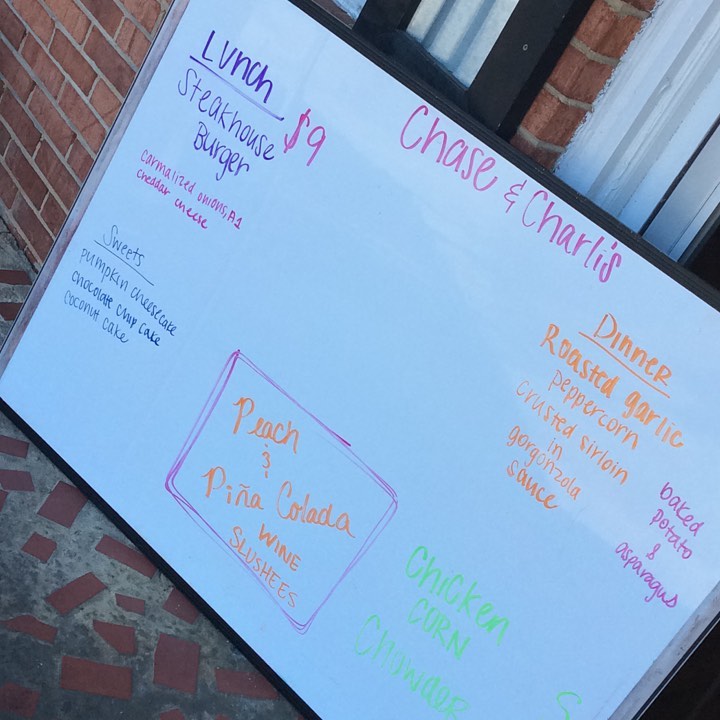 Chase & Charli's
Lunch
Steakhouse
Burger
$9
carmalized onions, A1
cheddar cheese
Sweets
pumpkin cheesecake
chocolate chip cake
coconut cake
Peach
&
Piña Colada
WINE
SLUSHEES
Dinner
Roasted garlic
peppercorn
crusted sirloin
in
gorgonzola
sauce
baked
potato
&
asparagus
Chicken
CORN
Chowder